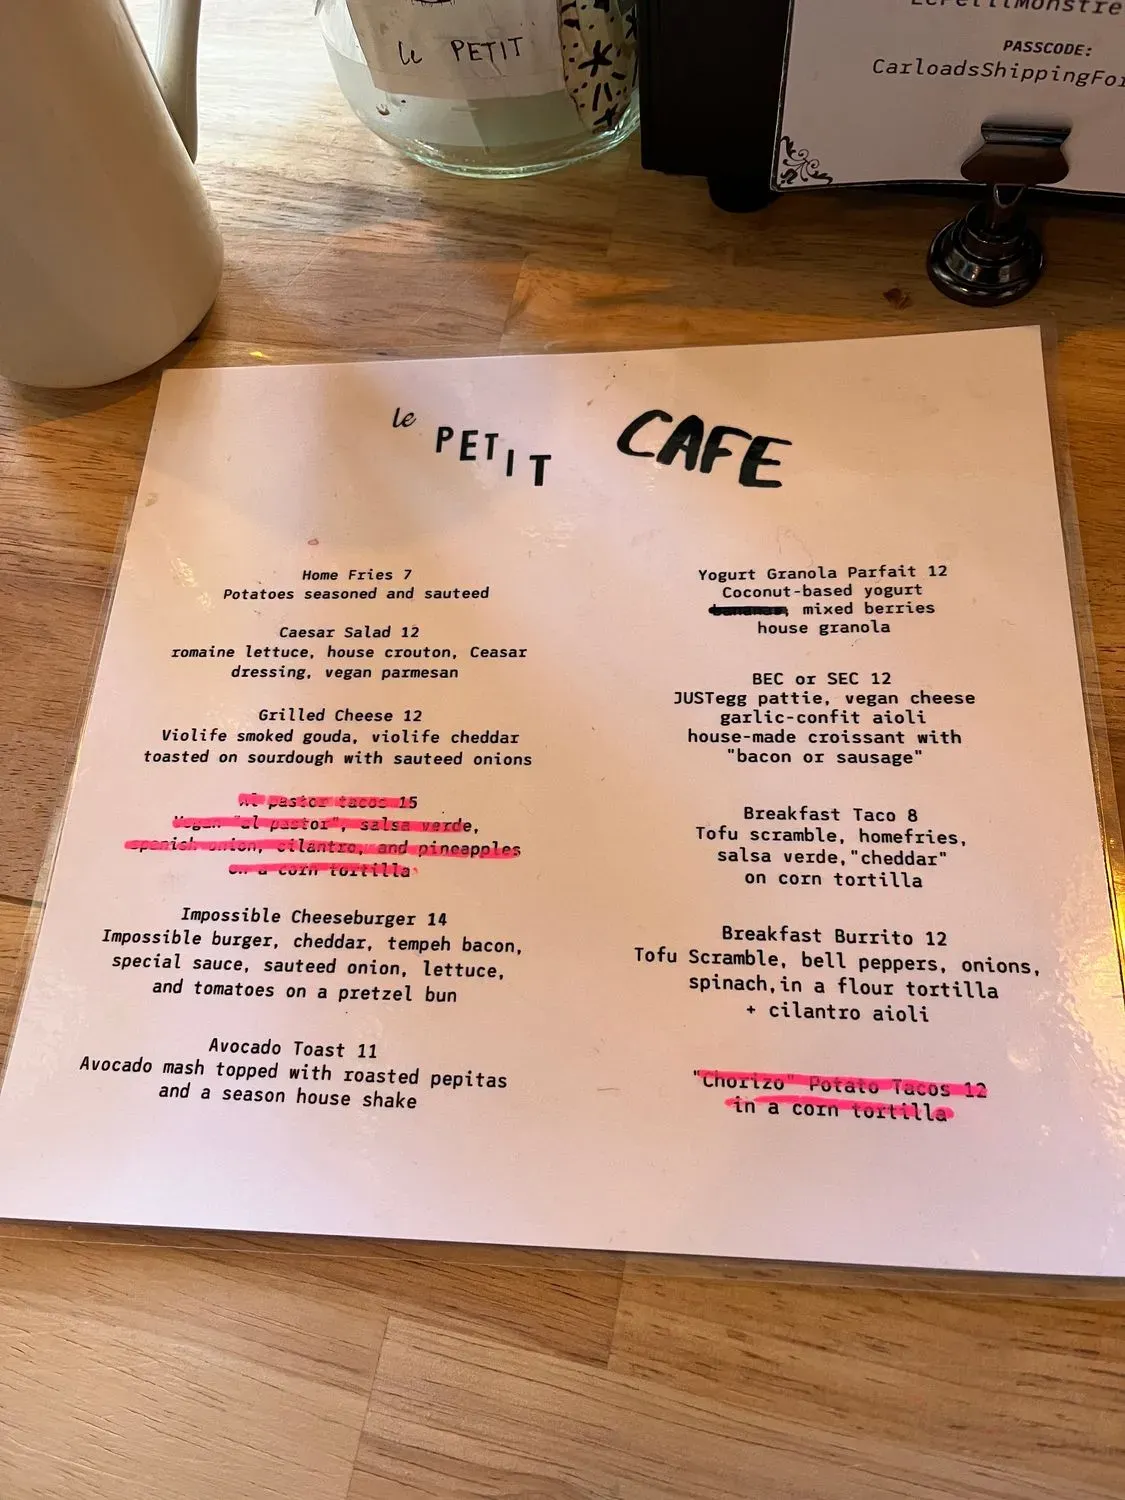 le PETIT
PASSCODE:
le PETIT CAFE
Home Fries 7
Potatoes seasoned and sauteed
Caesar Salad 12
romaine lettuce, house crouton, Ceasar
dressing, vegan parmesan
Grilled Cheese 12
Violife smoked gouda, violife cheddar
toasted on sourdough with sauteed onions
Al pastor tacos 15
Vegan "al pastor", salsa verde,
spanish onion, cilantro, and pineapples
on a corn tortilla
Impossible Cheeseburger 14
Impossible burger, cheddar, tempeh bacon,
special sauce, sauteed onion, lettuce,
and tomatoes on a pretzel bun
Avocado Toast 11
Avocado mash topped with roasted pepitas
and a season house shake
Yogurt Granola Parfait 12
Coconut-based yogurt
bananas, mixed berries
house granola
BEC or SEC 12
JUSTegg pattie, vegan cheese
garlic-confit aioli
house-made croissant with
"bacon or sausage"
Breakfast Taco 8
Tofu scramble, homefries,
salsa verde,"cheddar"
on corn tortilla
Breakfast Burrito 12
Tofu Scramble, bell peppers, onions,
spinach,in a flour tortilla
+ cilantro aioli
"Chorizo" Potato Tacos 12
in a corn tortilla